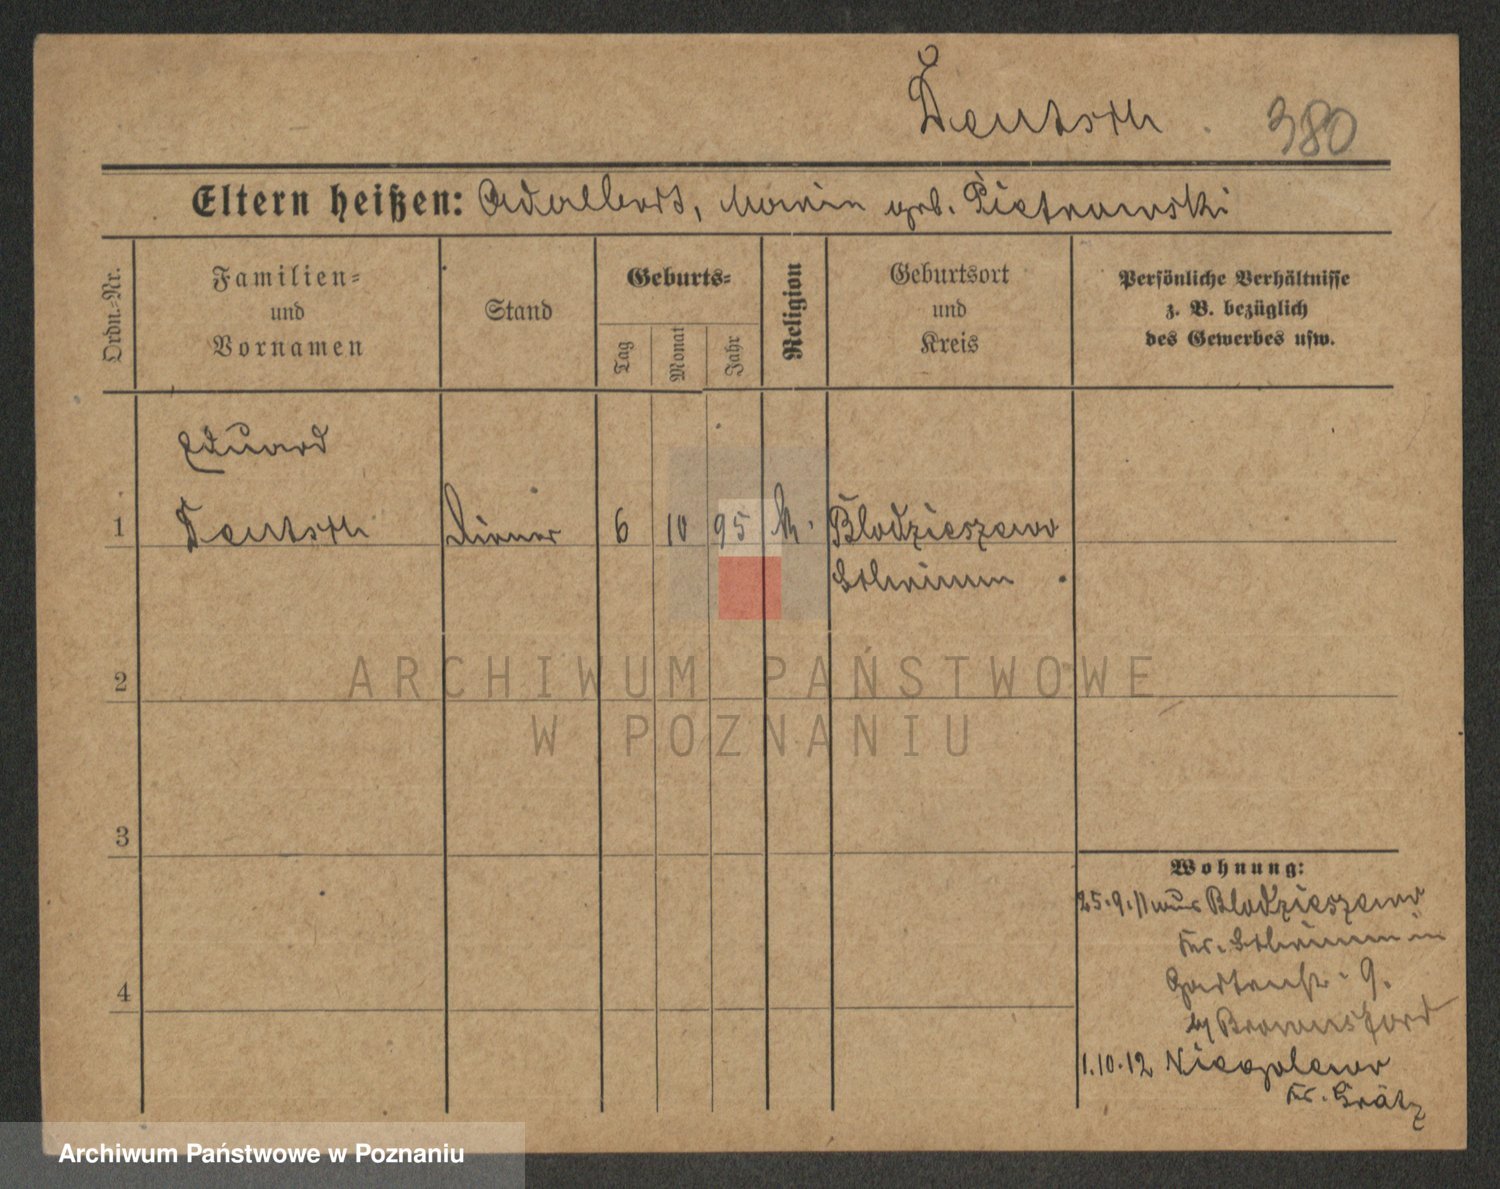 Deutsch. 380
Eltern heißen: Adalbert, Maria geb. Pietrowski
Ordn.-Nr.
Familien-
und
Vornamen
Stand
Geburts-
Tag
Monat
Jahr
Religion
Geburtsort
und
Kreis
Persönliche Verhältnisse
z. B. bezüglich
des Gewerbes usw.
Eduard
1 Deutsch Diener 6 10 95 k. Blodzieszewo
Schrimm
2
ARCHIWUM PAŃSTWOWE
W POZNANIU
3
Wohnung:
25.9.11 aus Blodzieszewo
Kr. Schrimm in
Gartenstr. 9.
by Brownsford
4
1.10.12 Niegolewo
Kr. Grätz
Archiwum Państwowe w Poznaniu